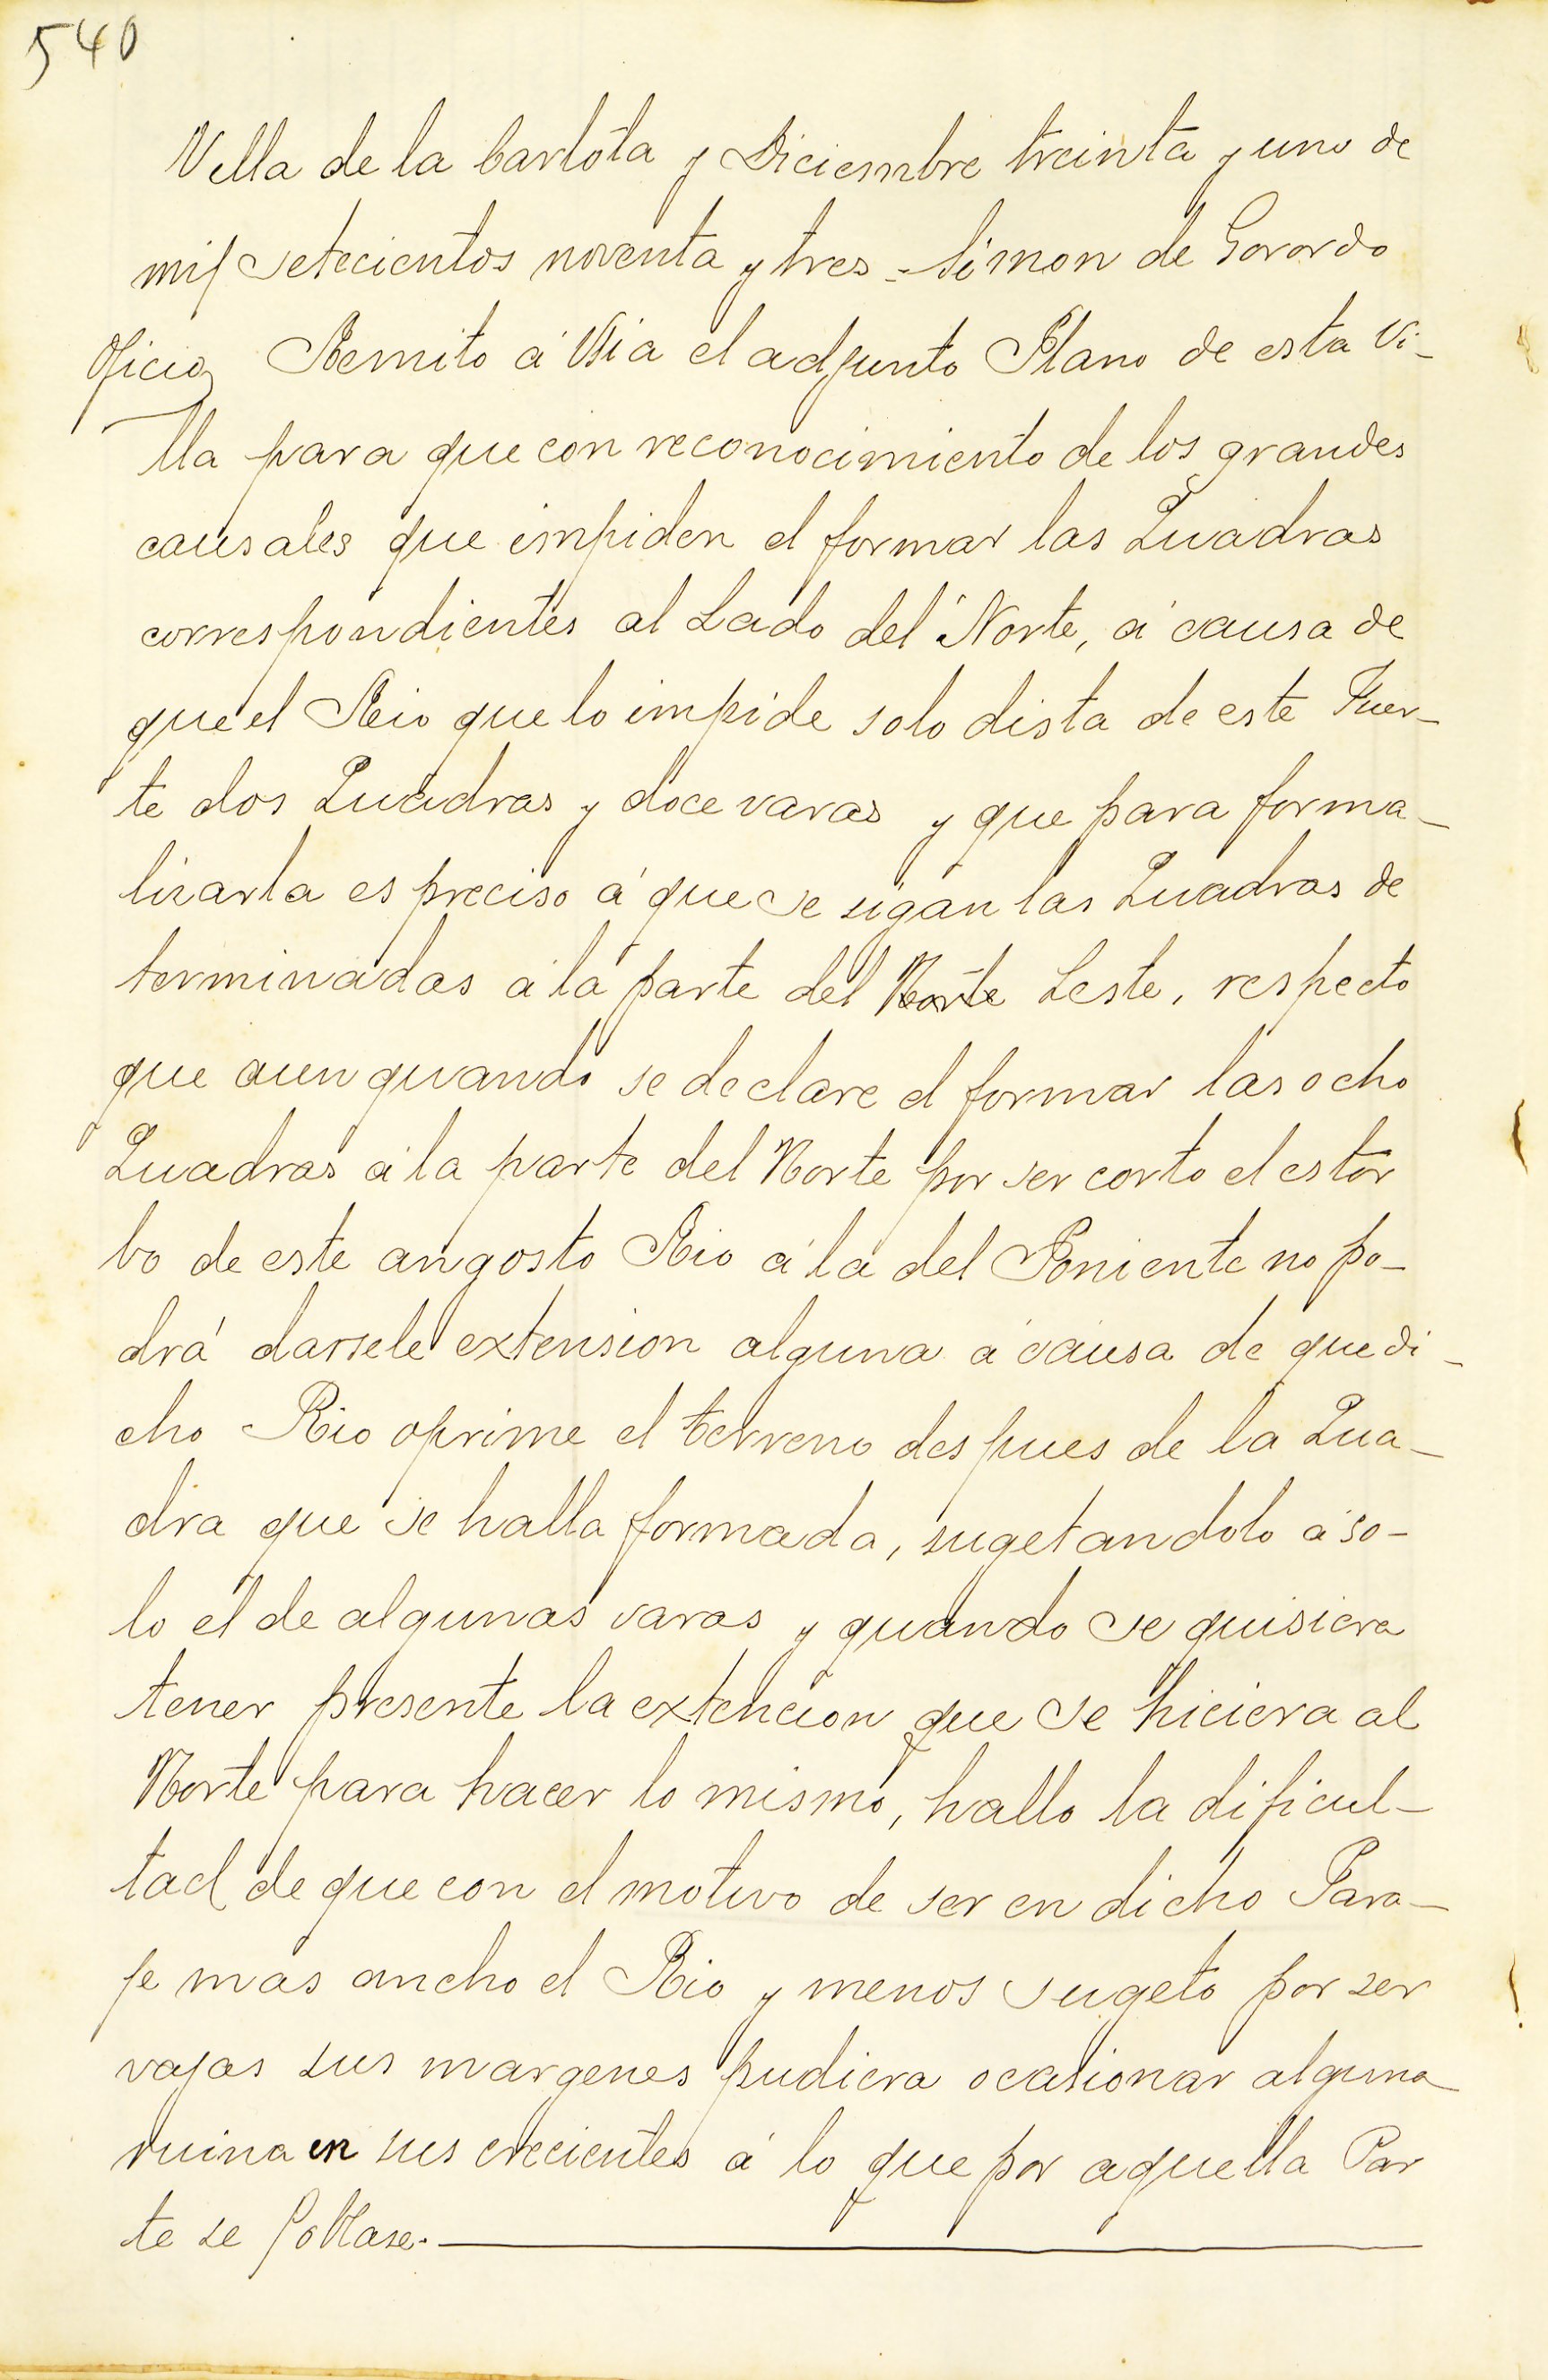 540
Villa de la Carlota y Diciembre treinta y uno de
mil setecientos noventa y tres - Simon de Gorordo
Oficio Remito á Usia el adjunto Plano de esta Vi-
lla para que con reconocimiento de los grandes
causales que impiden el formar las Quadras
correspondientes al Lado del Norte, á causa de
que el Rio que lo impide solo dista de este Fuer-
te dos Quadras y doce varas y que para forma-
lizarla es preciso á que se sigan las Quadras de
terminadas a la parte del Norte Leste, respecto
que aun quando se declare el formar las ocho
Quadras á la parte del Norte por ser corto el estor
bo de este angosto Rio á la del Poniente no po-
drá darsele extension alguna á causa de que di-
cho Rio oprime el terreno despues de la Qua-
dra que se halla formada, sugetandolo á so-
lo el de algunas varas y quando se quisiera
tener presente la extencion que se hiciera al
Norte para hacer lo mismo, hallo la dificul-
tad de que con el motivo de ser en dicho Para-
je mas ancho el Rio y menos sugeto por ser
vajas sus margenes pudiera ocasionar alguna
ruina en sus crecientes á lo que por aquella Par
te se Poblase.